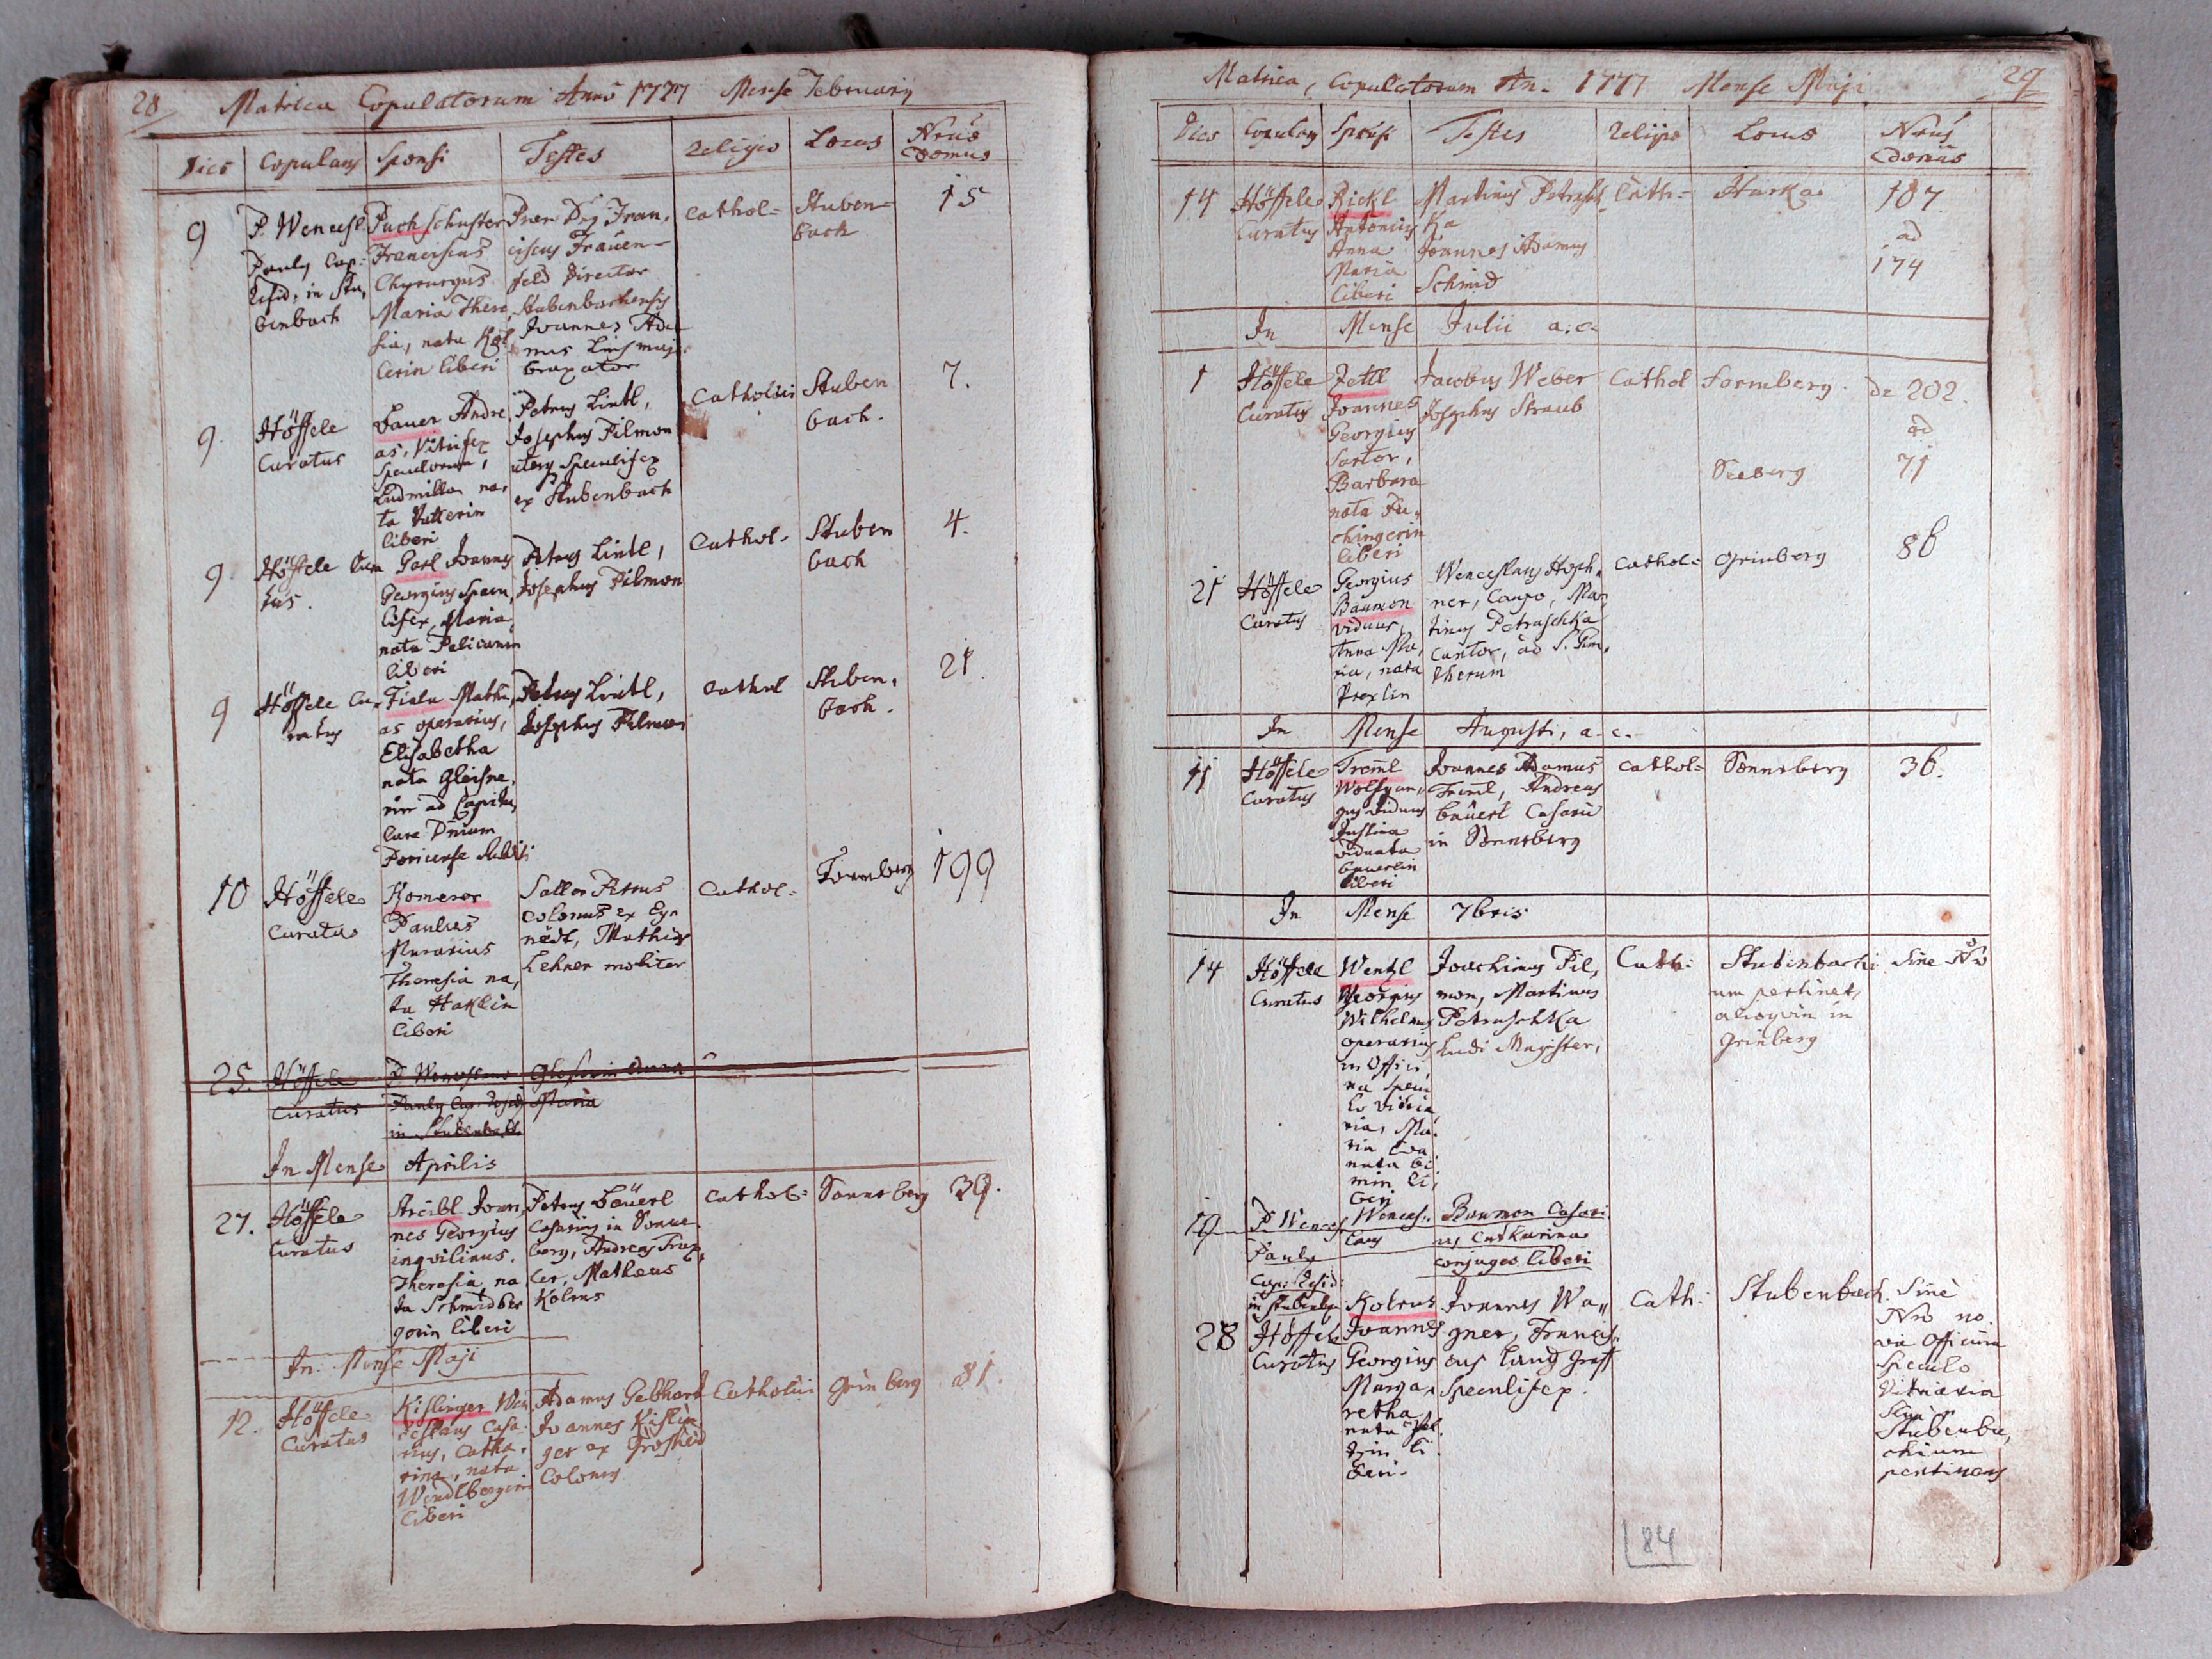 28 Matrica Copulatorum Anno 1777 Mense February
Dies Copulans Sponsi Testes Religio Locus Nrus Domus
9
P. Wencesl.
Pauly Cap:
Resid: in Stu,
benbach
Puchschuster
Franciscus
Chyrurgus
Maria There,
sia, nata
lerin liberi
Fran,
ciscus Frauen-
feld Director
Stubenbachensis
Joannes Ada
mus
braxator
Cathol=
Stuben=
bach
15
9.
Höffele
Curatus
Bauer Andre
as, Vitrifex
Speculorum,
Ludmilla na,
ta
liberi
Petrus Lintl,
Josephus Pilmon
uterq Speculifex
ex Stubenbach
Catholici
Stuben
bach.
7.
9.
Höffele Cura
tus.
Joannes
Georgius Specu,
lifex, Maria,
nata Pelicanin
liberi
Petrus Lintl,
Josephus Pilmon
Cathol-
Stuben
bach
4.
9
Höffele Cu,
ratus
Fiala Mathi,
as operarius,
Elisabetha
nata Gleisne,
rin ad Capitu,
lare Dnium
Petrus Lintl,
Josephus Pilmon
Cathol
Stuben,
bach.
21.
10
Höffele
Curatus
Komerer
Paulus
Murarius
Theresia na,
ta Haklin
liberi
Petrus
colonus ex Ey,
nedt, Mathias
Lehner molitor
Cathol=
199
25.
Höffele
Curatus
Pauly Cap. Resid
in Stubenbach
Anna
Maria
In Mense Aprilis
27.
Höffele
Curatus
Streibl Joan,
nes Georgius
inqvilinus.
Theresia na
ta Schmidber
gerin liberi
Petrus Bäuerl
Casarius in Sonne
berg, Andreas Trax,
ler, Matheus
Kolrus
Cathol=
Sonneberg
39.
In Mense Maji
12.
Höffele
Curatus
Kislinger Wen
ceslaus Casa-
rius, Catha-
rina, nata
Wendlbergerin
liberi
Adamus Gebhard
Joannes Kislin
ger ex
Colonus
Catholici
Grinberg
81.
Matrica, Copulatorum An. 1777 Mense Maji 29
Dies Copulans Sponsi Testes Religio Locus Nrus Domus
14
Höffele
Curatus
Rickl
Antonius
Anna
Maria
liberi
Martinus Petrusch
Ka
Joannes Adamus
Schmid
Cath=
Hurka
107
ad
174
In Mense Julii a: c.
1
Höffele
Curatus
Zettl
Joannes
Georgius
Sartor,
Barbara
nata Fu,
chingerin
liberi
Jacobus Weber
Josephus Straub
Cathol
Formberg.
Seeberg
De 202.
ad
71
21
Höffele
Curatus
Georgius
Baumon
viduus,
Anna Ma,
ria, nata
Wenceslaus Hoph,
ner, Caupo, Mar,
tinus Petruschka
Cantor, ad S. Gun,
therum
Cathol=
Grinberg
86
In Mense Augusti, a. c.
11
Höffele
Curatus
Treml
Wolfgan,,
gus viduus
Justina
viduata
Bauerlin
liberi
Joannes Adamus
Treml, Andreas
Bäuerl Casarii
in Sonneberg
Cathol=
Sonneberg
36.
In Mense 7bris
14
Höffele
Curatus
Wentzl
Georgius
Wilhelmus
operarius
in Offici
na Specu
lo Vitria,
ria, Ma,
ria Eva
nata
li,
beri
Joachimus Pil,
mon, Martinus
Petruschka
Ludi Magister,
Cath:
Stubenbachi
um pertinet,
alioqvin in
Grinberg
Sine Nro
19
P. Wences
Pauly
Cap: Resid:
in Stubenb
Wences,
laus
Baumon Casari
us Catharina
conjuges liberi
28
Höffele
Curatus
Kolrus
Joannes
Georgius
Marga,
retha
nata
li
beri.
Joannes Wa,,
gner, Francis,
cus Landgraff
Speculifex.
Cath:
Stubenbach.
Sine
Nro no,
va Officina
Speculo
Vitriaria
Stubenba,
chium
pertinens
84